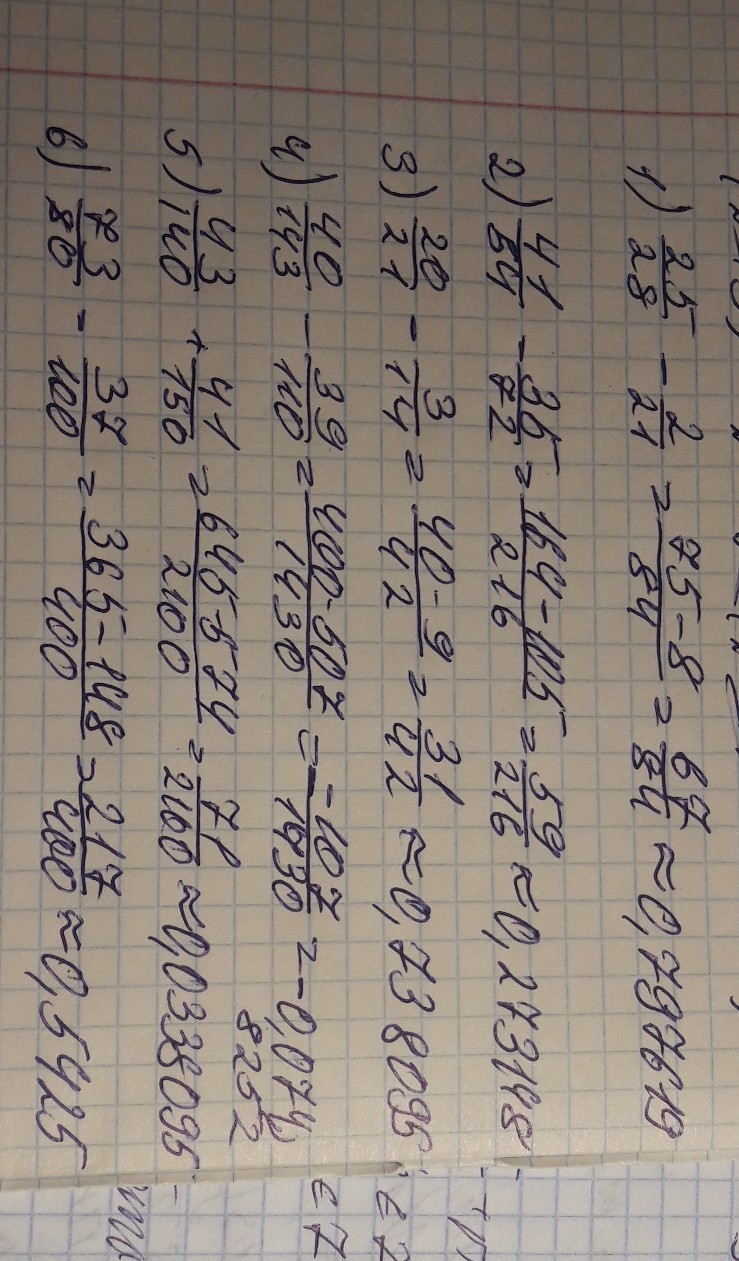 1) 25/28 - 2/21 = 75-8/84 = 67/84 ≈ 0,797619
2) 41/54 - 35/72 = 164-105/216 = 59/216 ≈ 0,273148
3) 20/21 - 3/14 = 40-9/42 = 31/42 ≈ 0,738095
4) 40/143 - 39/110 = 400-507/1430 = -107/1430 = -0,074
8252
5) 43/140 + 41/150 = 645-574/2100 = 71/2100 ≈ 0,0338095
6) 73/80 - 37/100 = 365-148/400 = 217/400 ≈ 0,5425